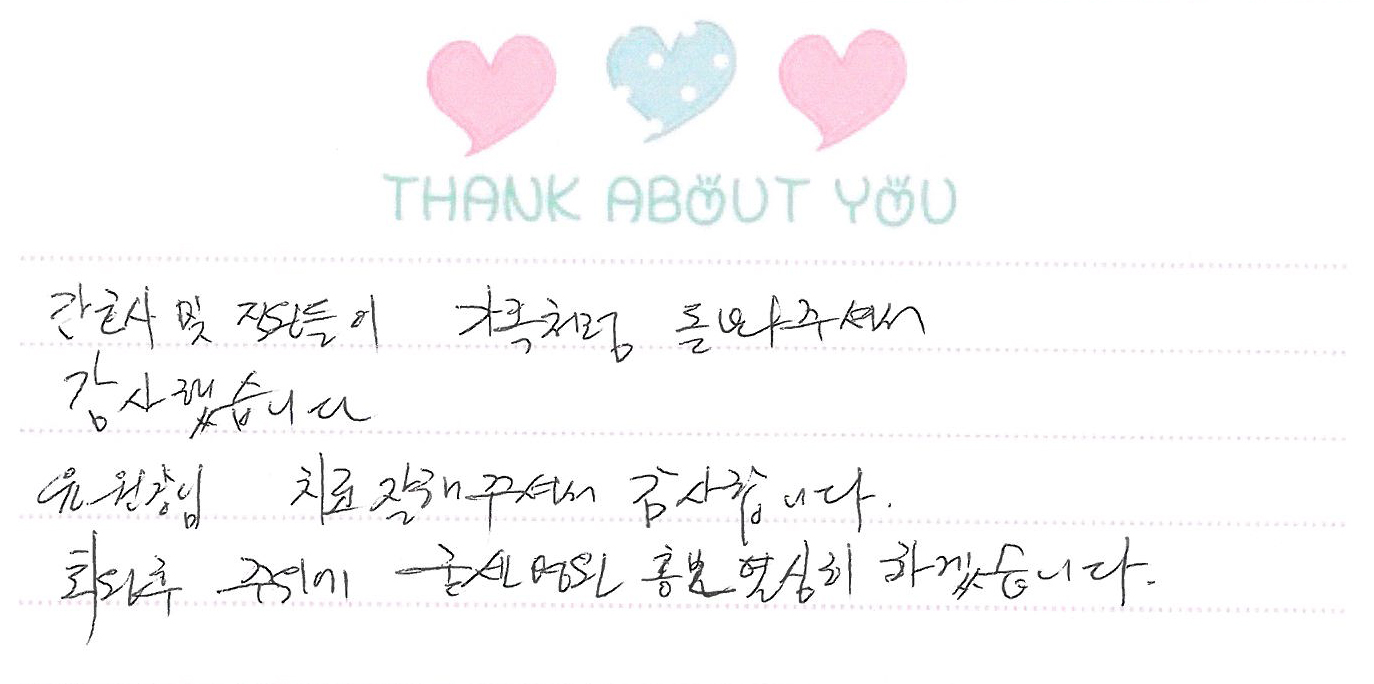 THANK ABOUT YOU
간호사 및 직원들이 가족처럼 돌봐주셔서
감사했습니다
유원장님 치료 잘해주셔서 감사합니다.
퇴원후 주위에 굿센병원 홍보 열심히 하겠습니다.